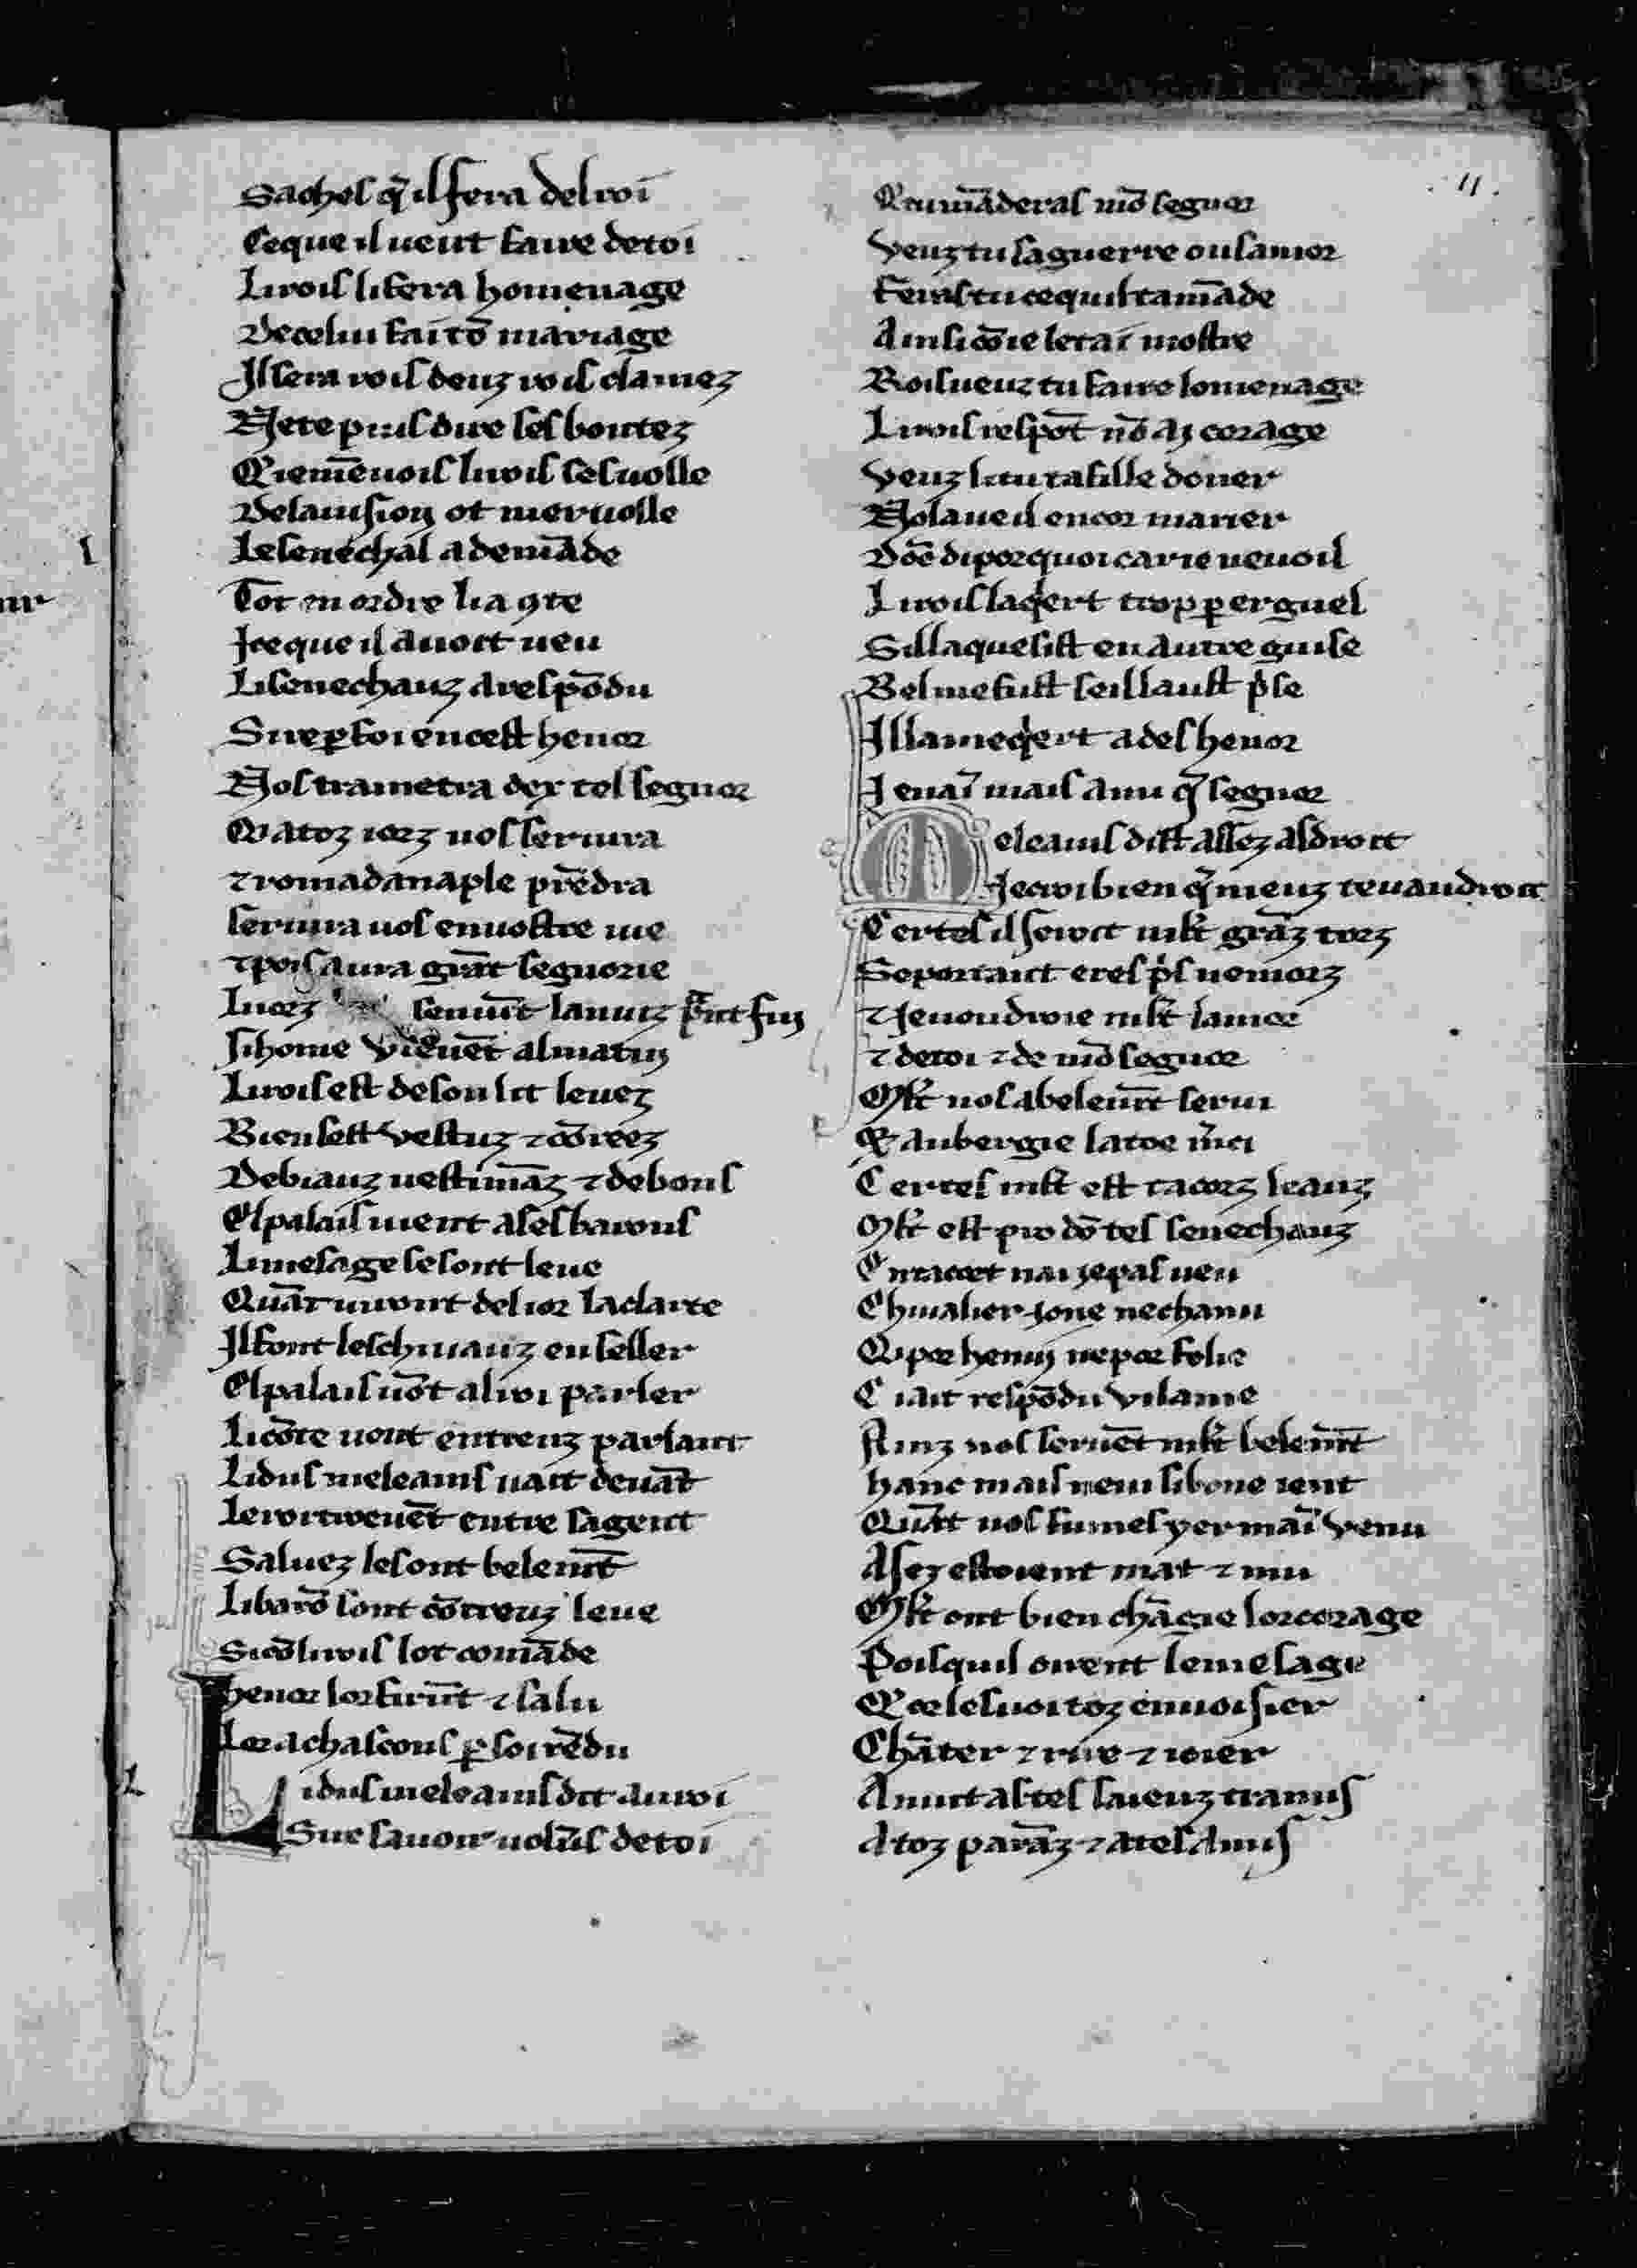 11.
Saches q̃ il fera del roi
Ce que il veut faire de toi
Li rois li fera homenage
De celui fai tõ mariage
Il sera rois deuz rois clamez
Ne te puis dire ses bontez
Li rois sesvolle
De lavision ot mervolle
Le senechal a demãde
Tot en ordre li a 9te
Ice que il avoit veu
Li senechauz a respõdu
Sire p̱ foi en cest henor
Nos trametra dex tel segnor
Qui a toz iorz nos servira
⁊ romadanaple prẽdra
Servira vos en vostre vie
⁊ pois aura grãt segnorie
si home vienẽt al matin
Li rois est de son lit levez
Bien sest vestuz ⁊ cõreez
De biauz vestimãz ⁊ de bons
El palais vient a ses barons
Li mesage se sont leve
Quãt viront del ior la clarte
Il font les chivauz enseller
El palais võt al roi parler
Li cõte vont entreuz parlant
Li dus meleanis vait devãt
Le roi trovẽt entre sa gent
Salue lesont belemt̃
Li barõ sont cõtreuz leve
Si cõ li rois lot comãde
Henor lor firẽt ⁊ salu
Lor a chascons p̱ soi rẽdu
Li dus meleanis dit au roi
Sire savoir volũs de toi
Qui mãderas mõ segnor
Veuz tu sa guerre ou samor
Feras tu ce quil ta mãde
Ainsi cõ ie le tai mostre
Rois veuz tu faire lomenage
Li rois respõt nõ ai corage
Veuz li tu ta fille doner
Nolaveil encor marier
Dõc di por quoi car ie ne voil
Li rois laq̇ert trop p̱ erguel
Sil laquesist en autre guise
Bel me fust seil laust p̃se
Il la me q̇ert a deshenor
Ie nai mais a nu q̃ segnor
Meleanis dist assez as droit
Ie croi bien q̃ mieuz te vaudroit
Certes il seroit mlt̃ grãz torz
Se por tant eres p̃s ne morz
⁊ ie voudroie mlt̃ lamor
⁊ de toi ⁊ de mõ segnor
Mlt̃ nos a belemt̃ servi
⁊ aubergie la toe m̃ci
Certes mlt̃ est ta corz leauz
Mlt̃ est prodõ tes senechauz
En ta cort nai ie pas veu
Chivalier ione ne chanu
Qui por henui ne por folie
Ciait respõdu vilanie
Ainz nos servẽt mlt̃ belemt̃
Hanc mais ne vi si bone ient
Quãt nos fumes yer mai venu
Asez estoient mat ⁊ mu
Mlt̃ ont bien chãgie lor corage
Pois quil oirent le mesage
Or les voi toz envoisier
Chãter ⁊ rire ⁊ ioier
A toz parãz ⁊ a tes amis